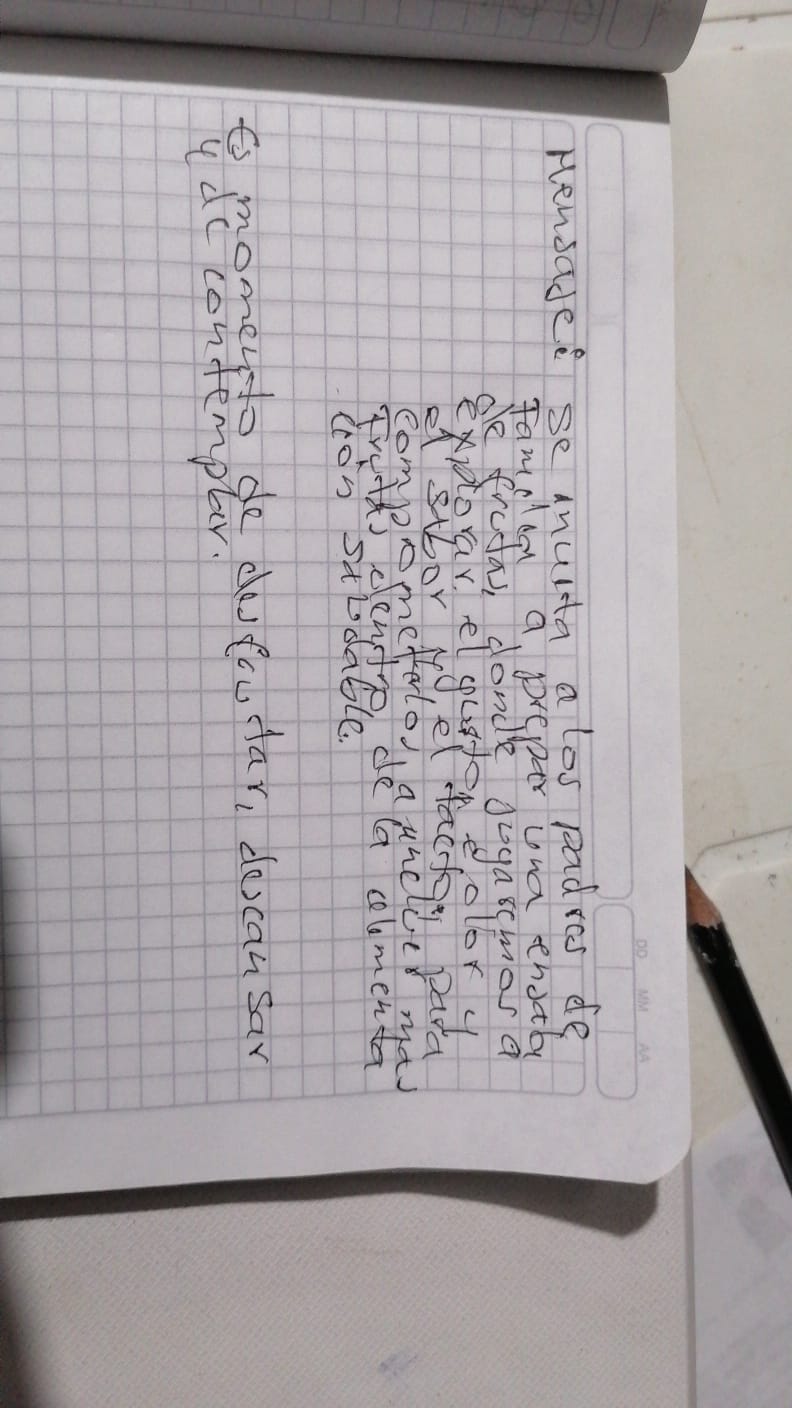 Mensaje: se invita a los padres de
familia a prepar una ensala
de frutas, donde jugaremos a
explorar el gusto, e olor y
el sabor y el tacto; para
comprometerlos a incluir mas
frutas dentro de la alimenta
ción saludable.
Es momento de disfrutar, descansar
y de contemplar.
DD MM AA